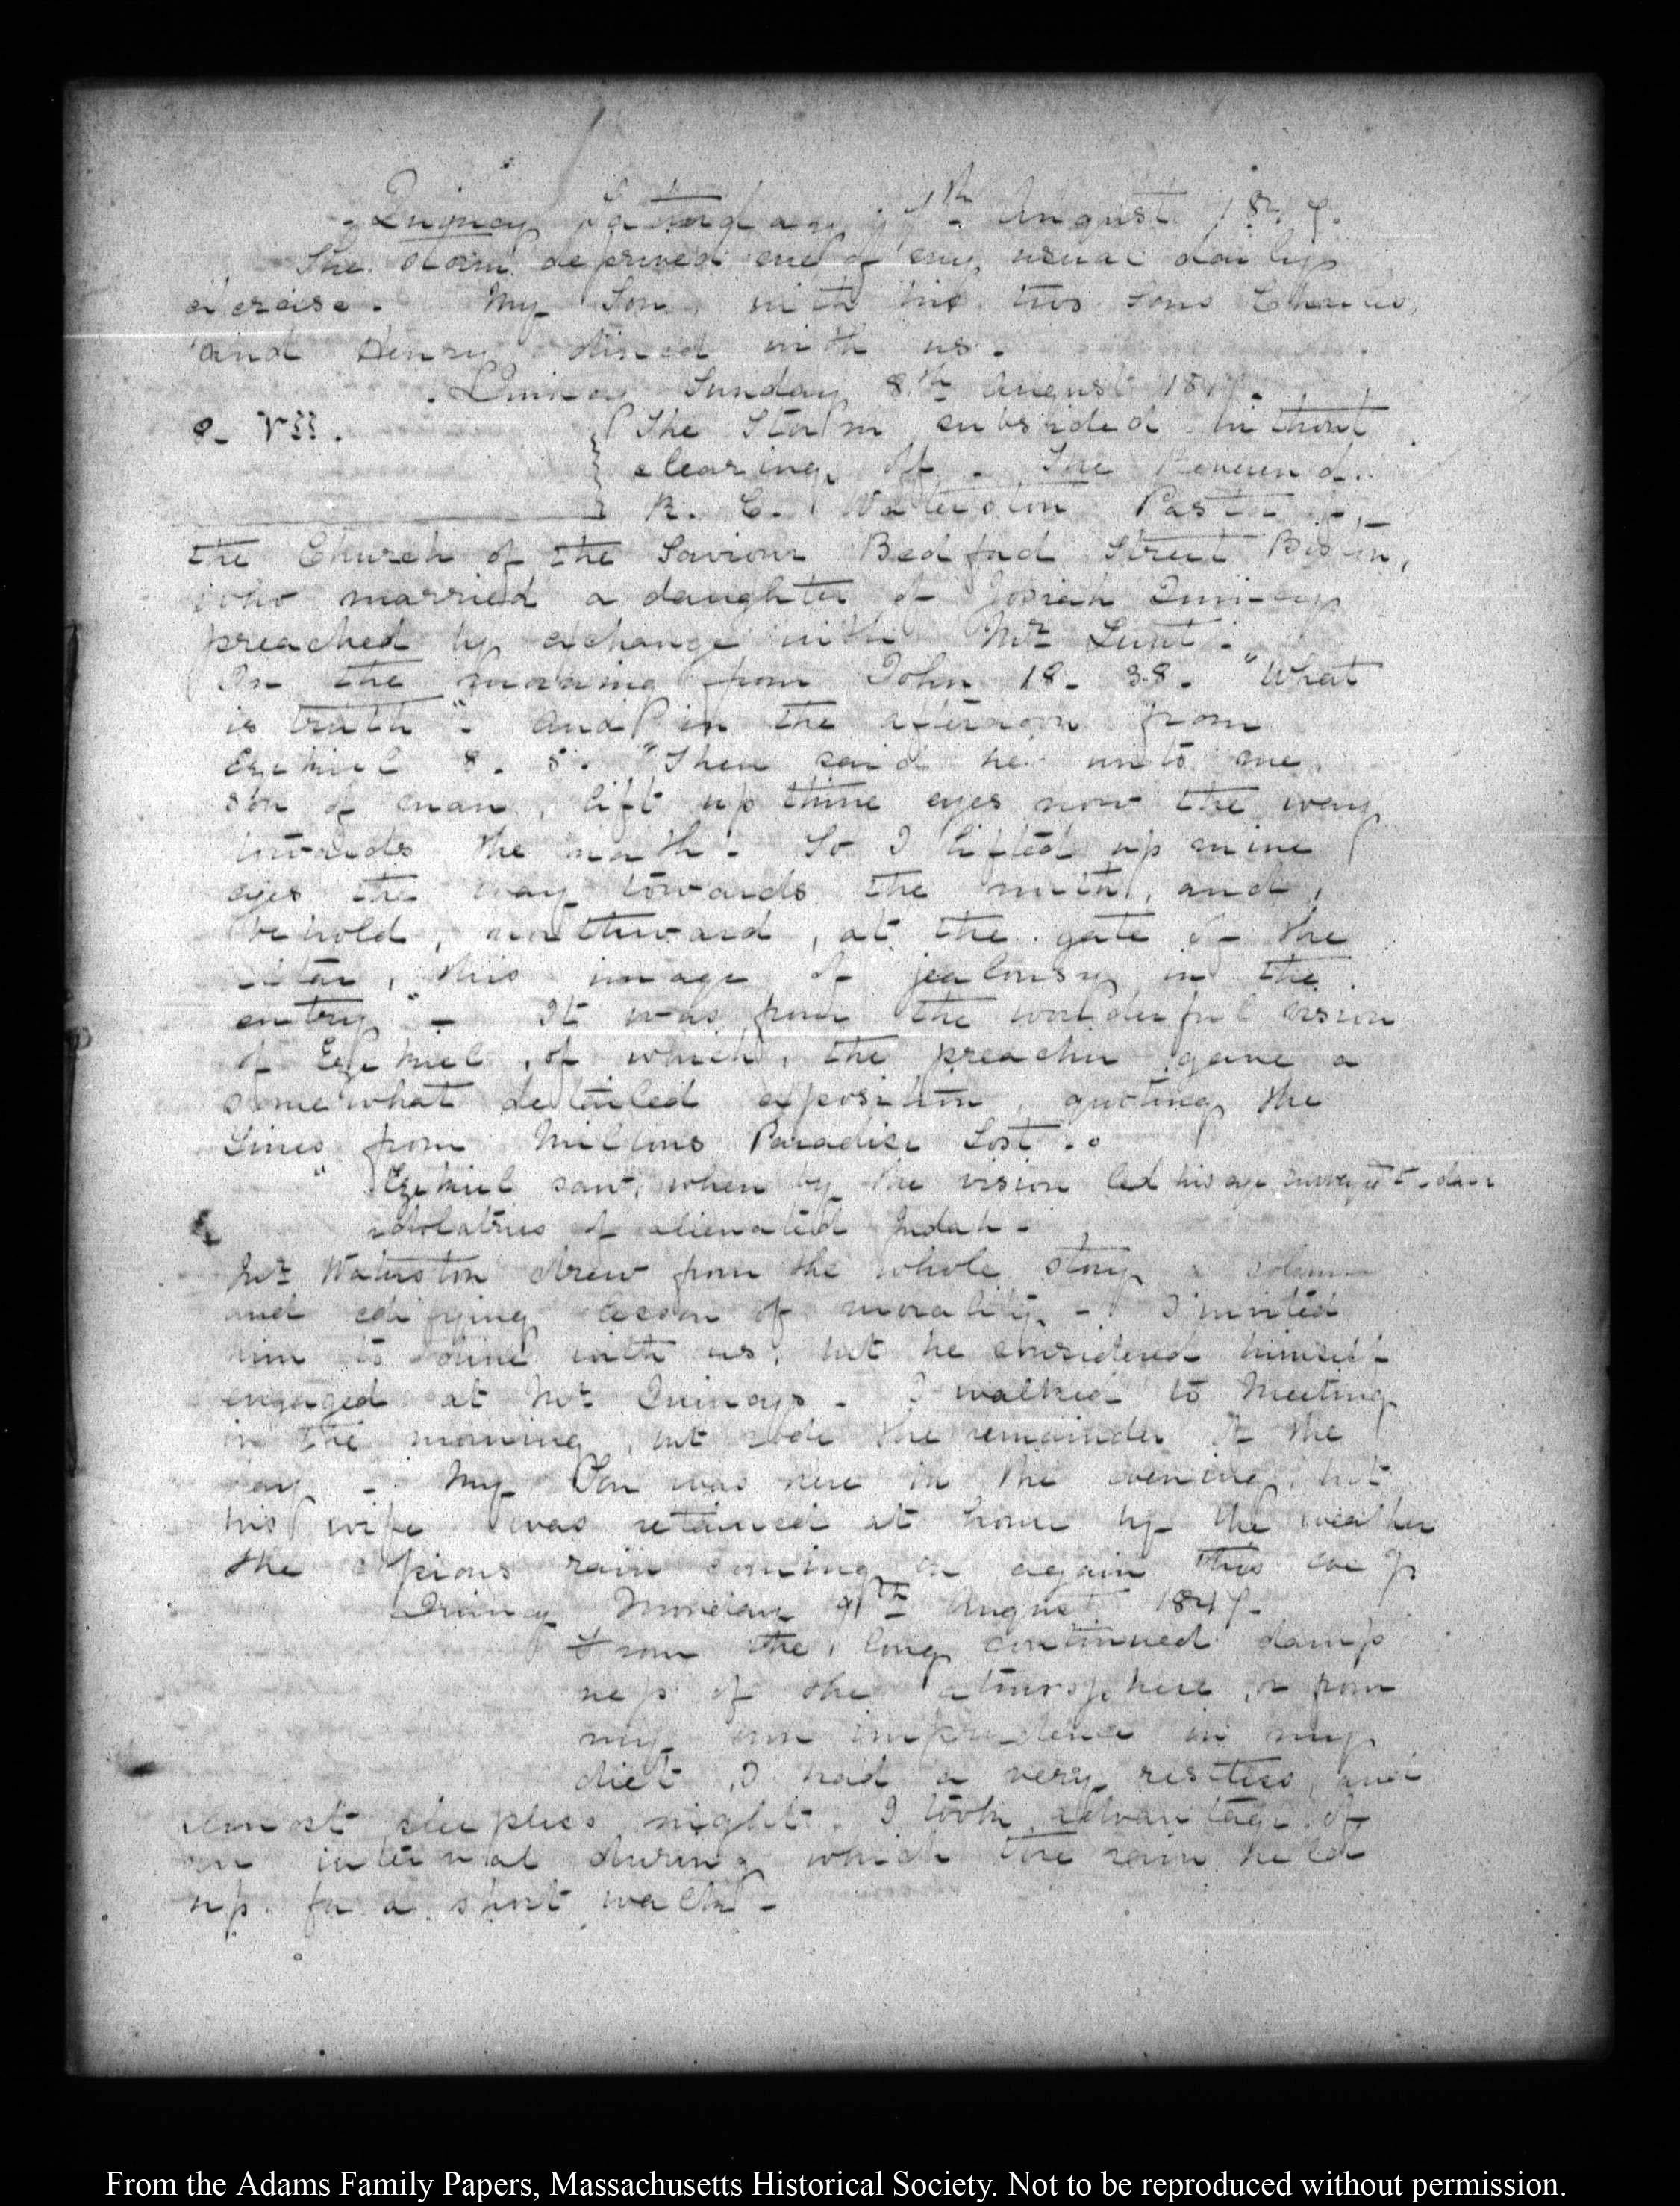 Quincy Saturday 7th August 1847.
The storm deprived me of my usual daily
exercise. My Son, with his two Sons Charles,
and Henry dined with us.
Quincy Sunday 8th August 1847.
8. VII.
The Storm subsided without
clearing off. The Reverend
R. C. Waterston Pastor of
the Church of the Saviour Bedford Street Boston,
who married a daughter of Josiah Quincy
preached by exchange with Mr Lunt.
In the morning from John 18. 38. "What
is truth". And in the afternoon from
Ezekiel 8. 5. "Then said he unto me
son of man, lift up thine eyes now the way
towards the north. So I lifted up mine
eyes the way towards the north, and,
behold, northward, at the gate of the
altar, this image of jealousy in the
entry" - It was from the wonderful vision
of Ezekiel, of which, the preacher gave a
somewhat detailed exposition, quoting the
Lines from Miltons Paradise Lost..
"Ezekiel saw, when by the vision led his eye survey'd the dark
idolatries of alienated Judah -
Mr Waterston drew from the whole story a solemn
and edifying lesson of morality. - I invited
him to dine with us, but he considered himself
engaged at Mr Quincys - I walked to Meeting
in the morning, but rode the remainder of the
day - My Son was here in the evening, but
his wife was retained at home by the weather
the copious rain coming on again this eve g
Quincy Monday 9th August 1847.
From the long continued damp
ness of the atmosphere, or from
my own imprudence in my
diet, I had a very restless and
almost sleepless night. I took advantage of
an interval during which the rain held
up for a short walk -
From the Adams Family Papers, Massachusetts Historical Society. Not to be reproduced without permission.